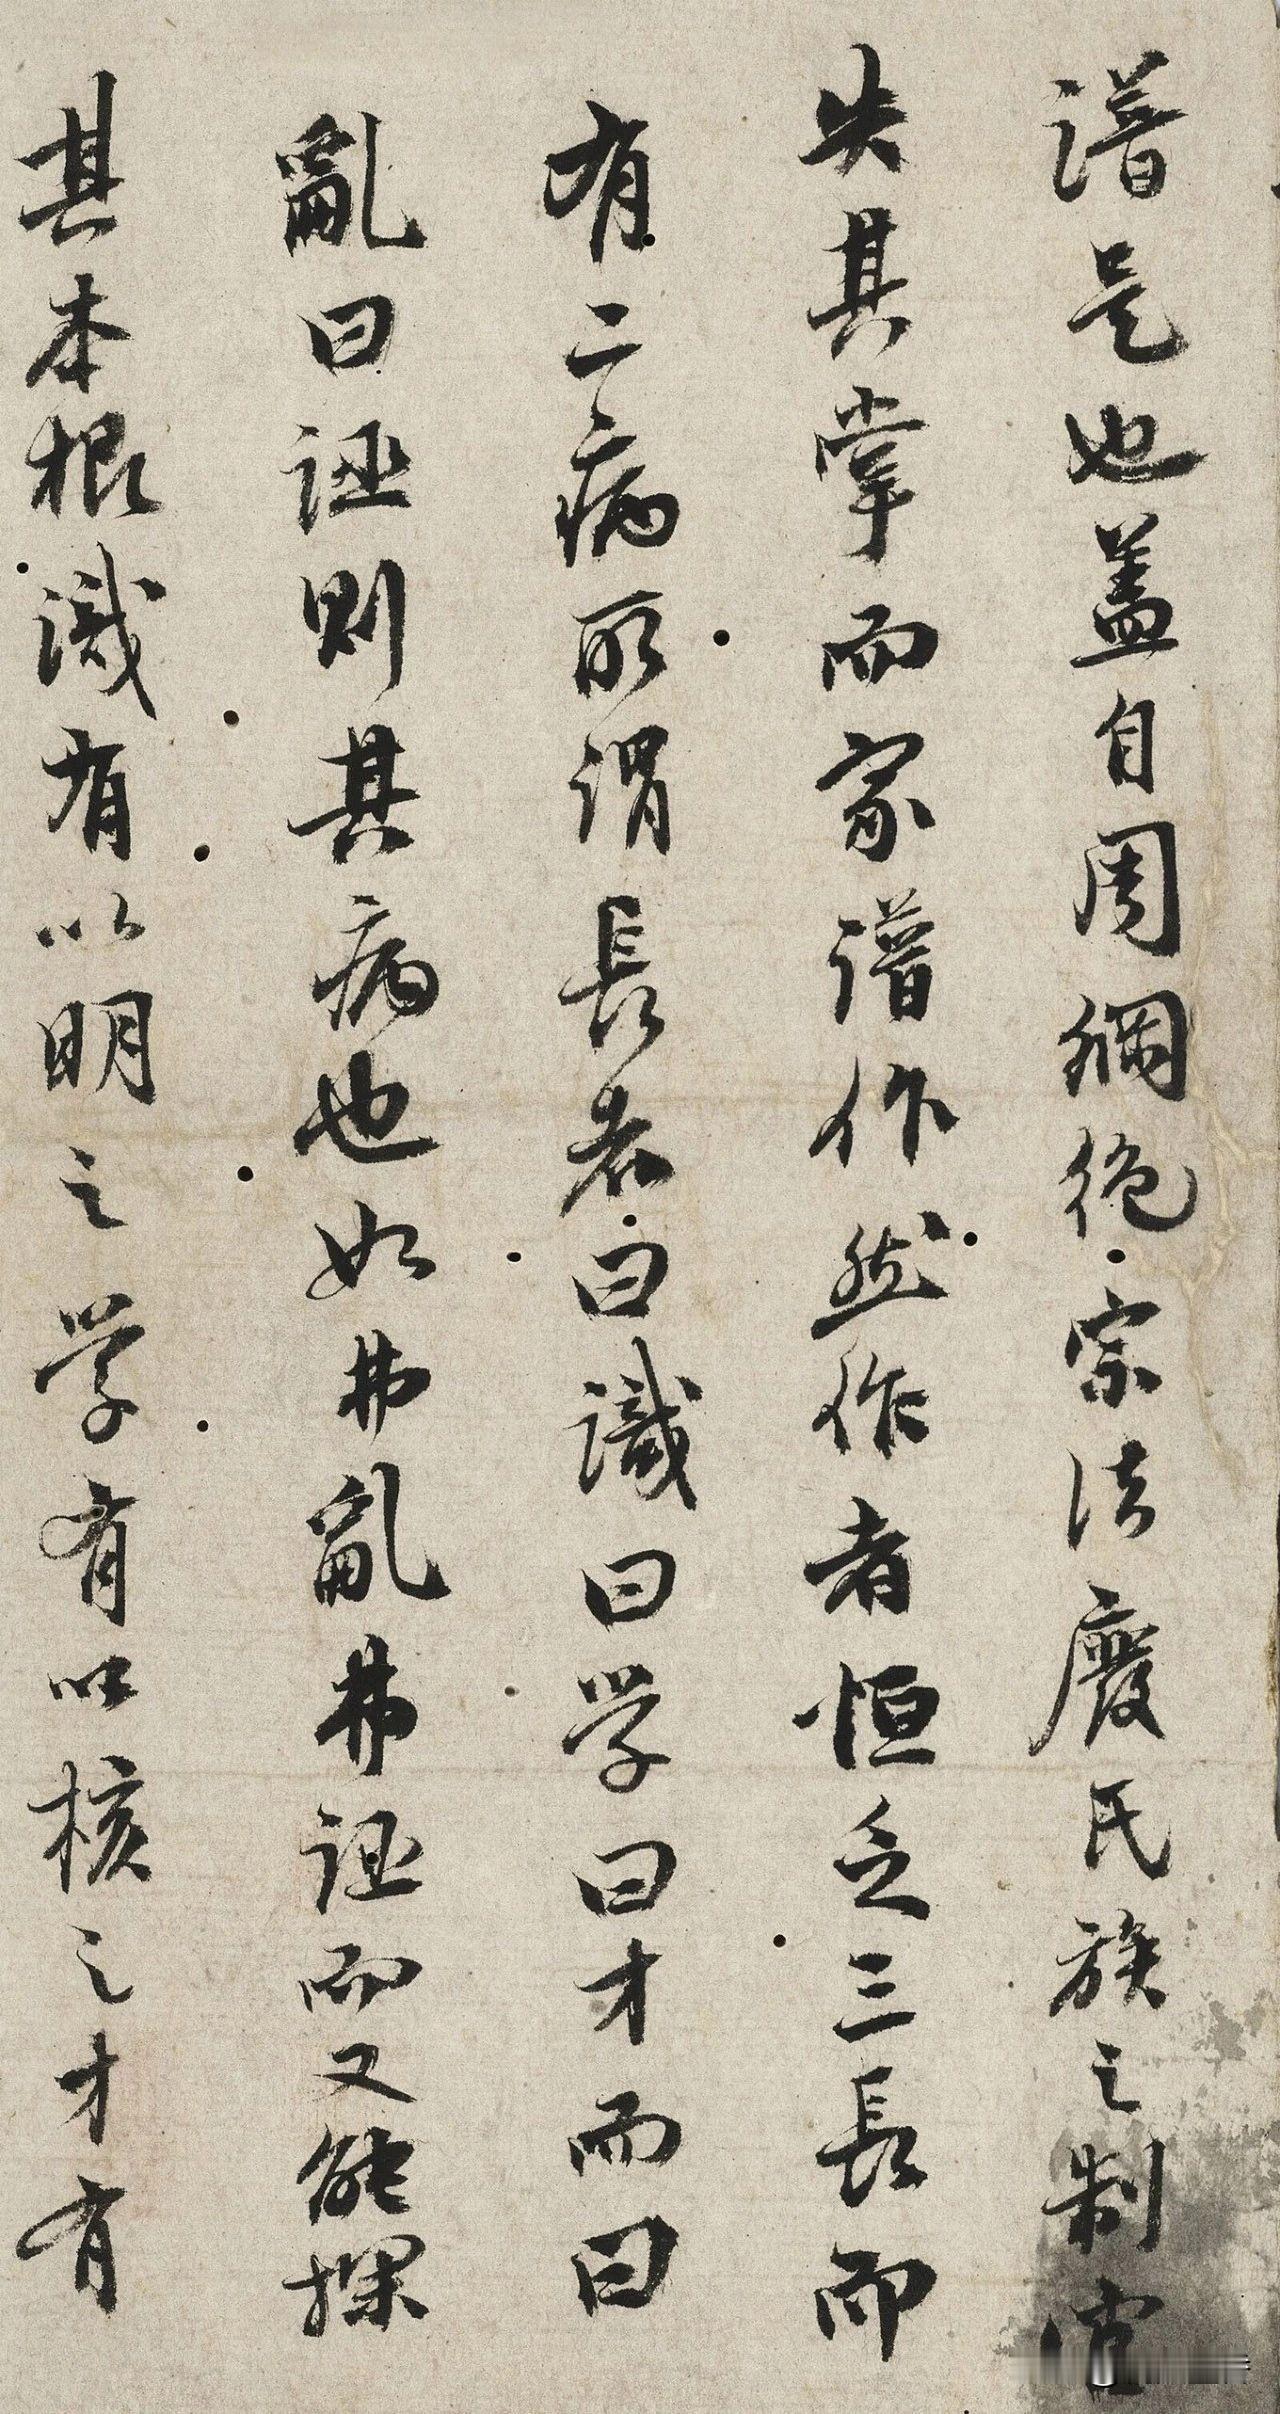 譜是也盖自周綱絶宗法廢氏族之制官
失其掌而家譜作然作者恒乏三長而
有二病所謂長者曰識曰学曰才而曰
亂曰誣則其病也如弗亂弗誣而又能探
其本根識有以明之学有以核之才有